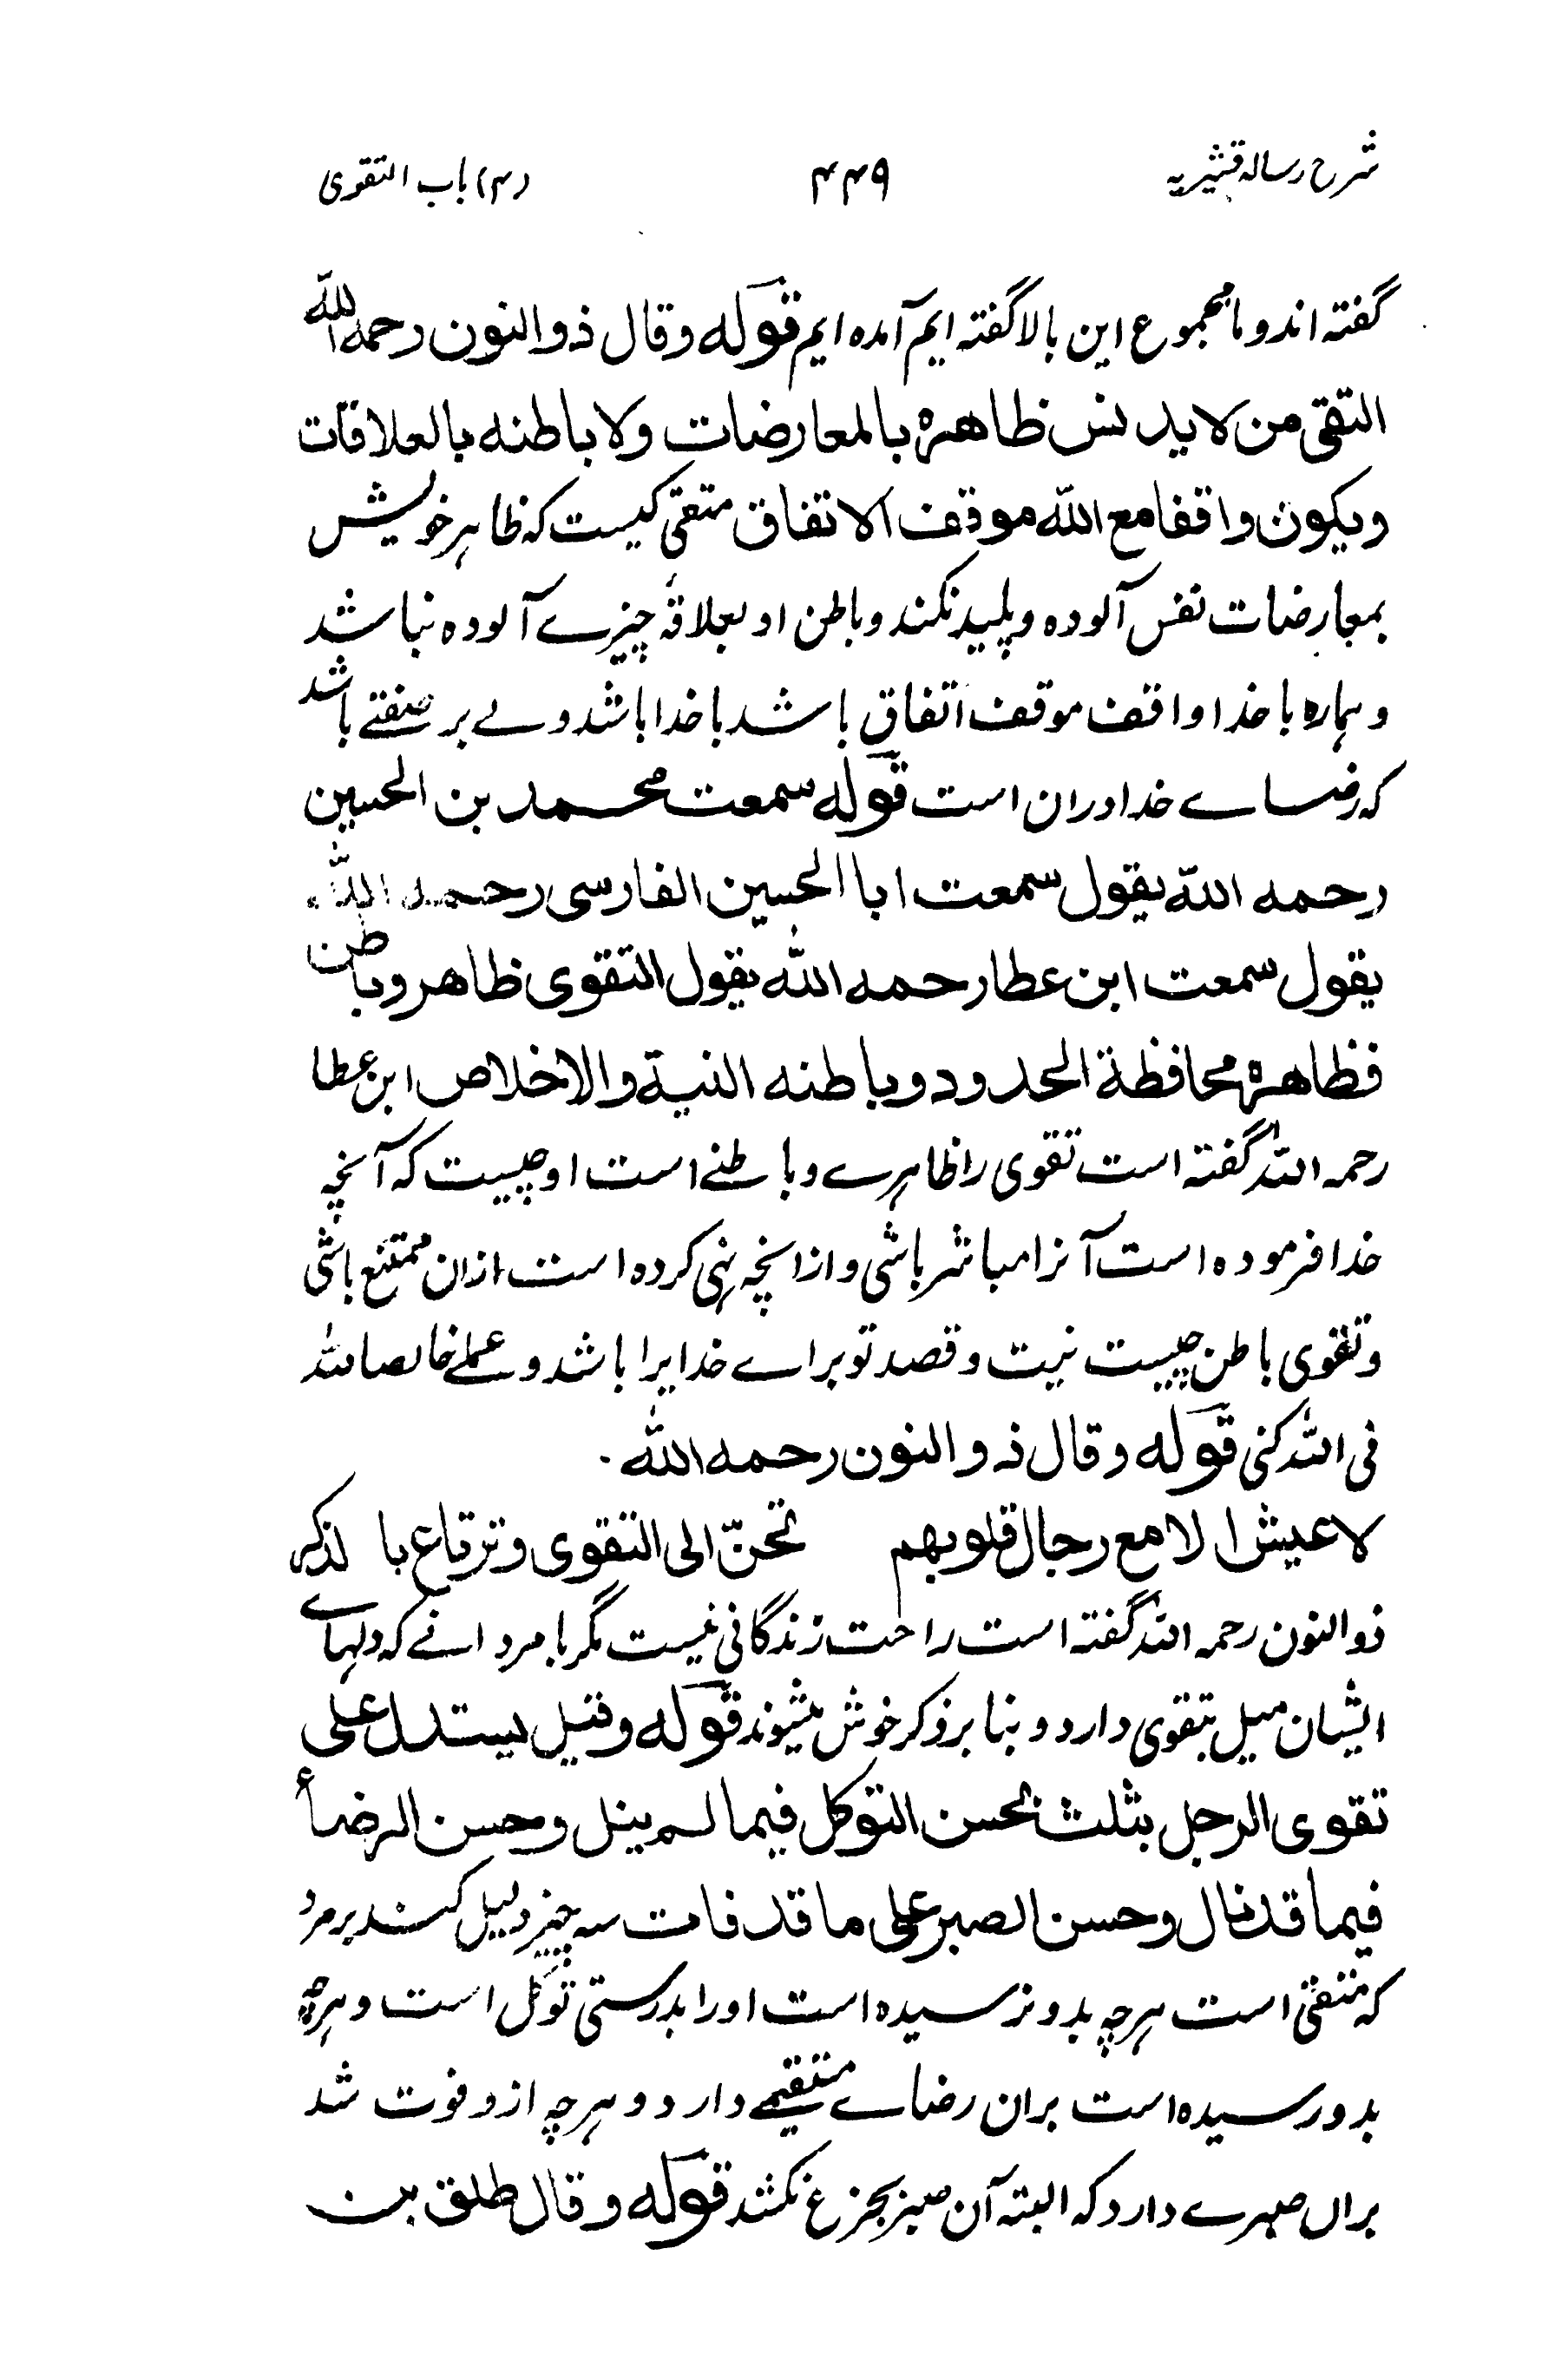 شرح رساله قشیریه ۴۴۹ (۴) باب التقوی
گفته اند و ما مجموع این بالا گفته ایم آمده ایم قوله وقال ذو النون رحمه الله
التقی من لا یدنس ظاهره بالمعارضات ولا باطنه بالعلاقات
ویکون واقفا مع الله موقف الاتفاق متقی کیست که ظاهر خویش
بمعارضات نفس آلوده و پلید نکند و باطن او بعلاقهٔ چیزے آلوده نباشد
و هماره با خدا واقف موقف اتفاق باشد با خدا باشد ولے بر صفتے باشد
که رضاے خدا دران است قوله سمعت محمد بن الحسین
رحمه الله یقول سمعت ابا الحسین الفارسی رحمه الله
یقول سمعت ابن عطا رحمه الله یقول التقوی ظاهر وباطن
فظاهره محافظة الحدود وباطنه النیة والاخلاص ابن عطا
رحمه الله گفته است تقوی را ظاهرے و باطنے است او چیست که آنچه
خدا فرموده است آنرا مباشر باشی و ازانچه نهی کرده است ازان ممتنع باشی
و تقوی باطن چیست نیت و قصد تو براے خدایرا باشد و عملے خالصا لله
فی الله کنی قوله وقال ذو النون رحمه الله.
لا عیش الا مع رجال قلوبهم تحنّ الی التقوی وترتاع بالذکر
ذو النون رحمه الله گفته است راحت زندگانی نیست مگر با مردانے که دلهاے
ایشان میل بتقوی دارد و بنا بر ذکر خوش میشوند قوله وقیل یستدل علی
تقوی الرجل بثلث بحسن التوکل فیما لم ینل وحسن الرضاء
فیما قد نال وحسن الصبر علی ما قد فات سه چیز دلیل کنند بر مرد
که متقی است هرچه بدو نرسیده است اورا بدرستی توکل است و هرچه
بدو رسیده است بران رضاے مستقیمے دارد و هرچه ازو فوت شد
براں صبرے دارد که البته آن صبر بجزع نکشد قوله وقال طلق بن